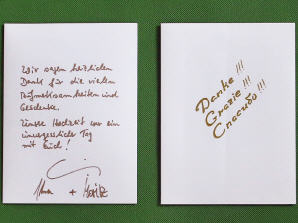 Wir sagen herzlichen
Dank für die vielen
Aufmerksamkeiten und
Geschenke.
Unsere Hochzeit war ein
unvergesslicher Tag
mit Euch!
+ Moritz
Danke!!!
Grazie!!!
Спасибо!!!